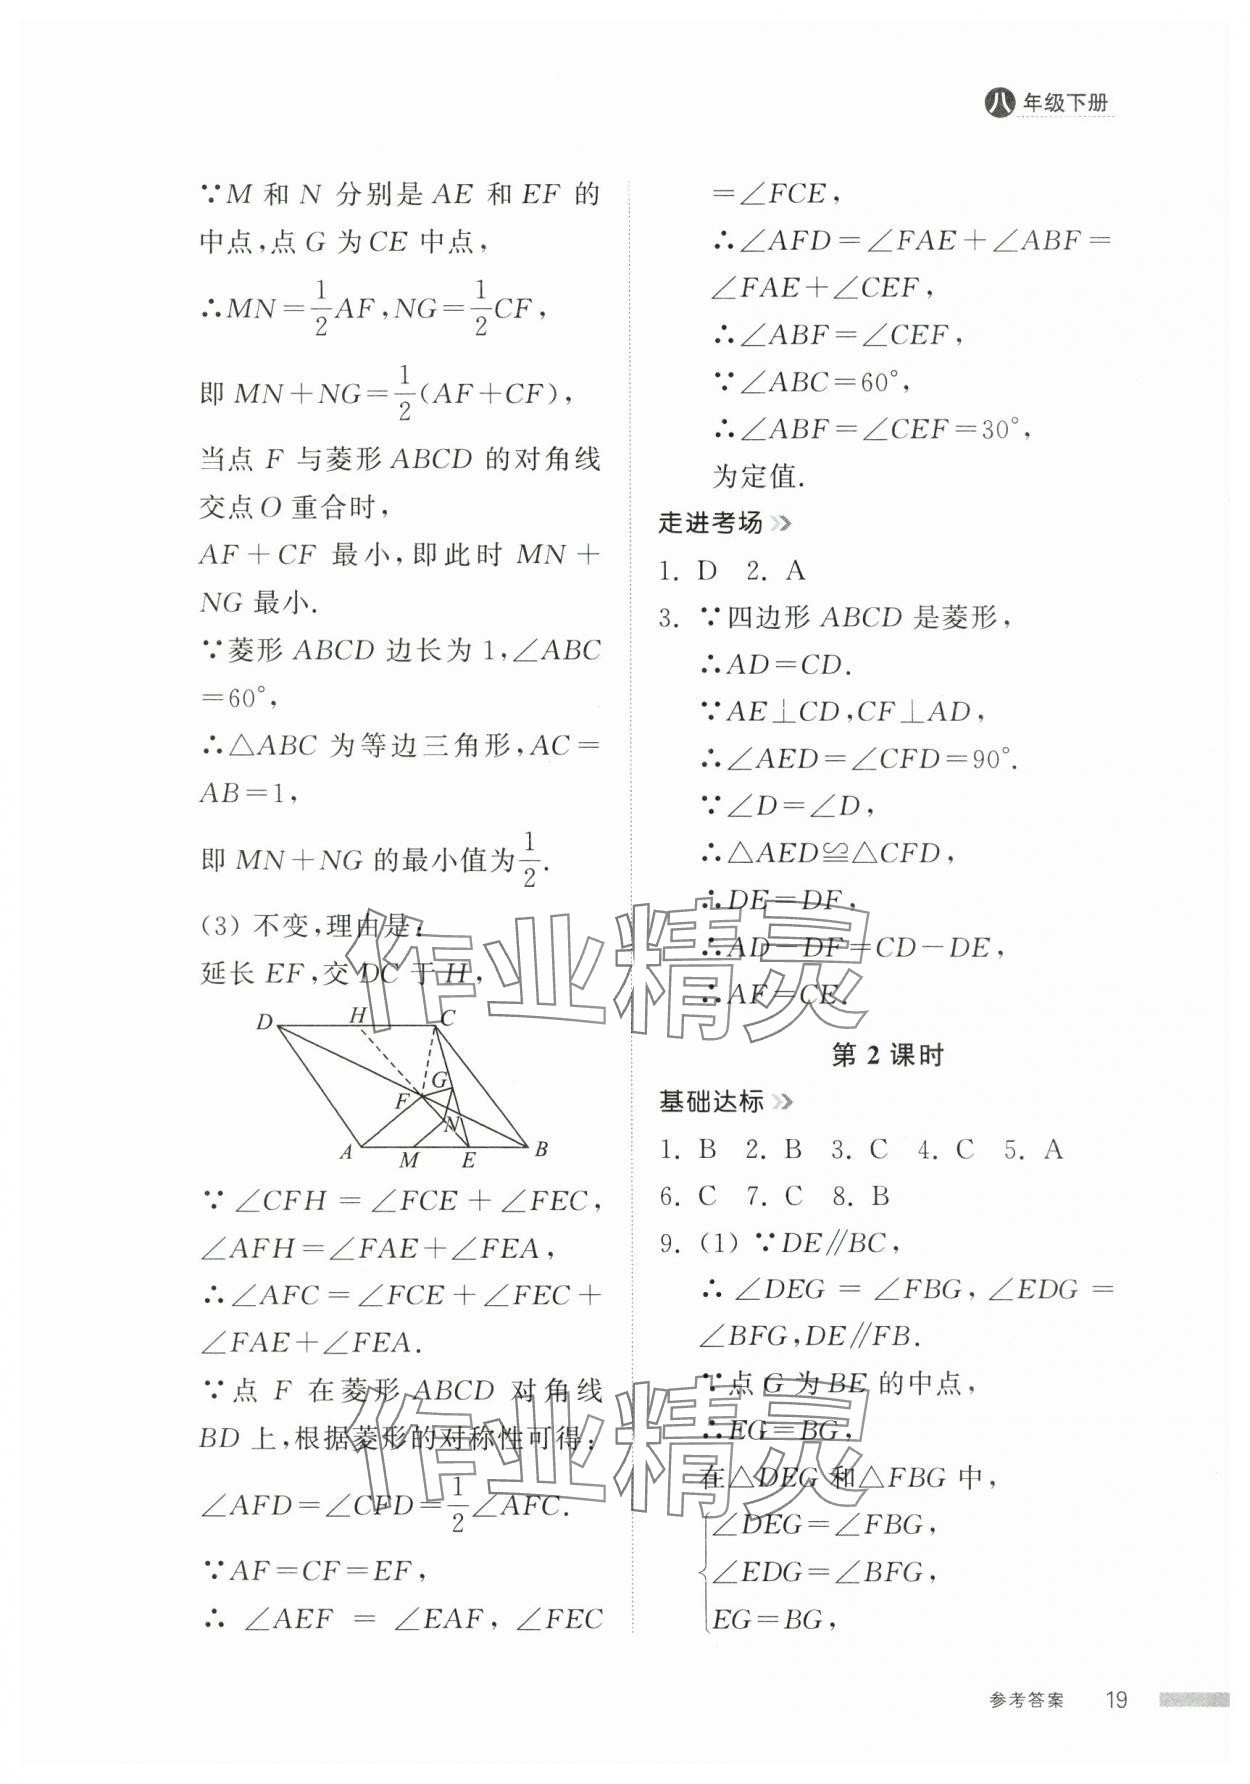 八年级下册
∵M 和 N 分别是 AE 和 EF 的
中点,点 G 为 CE 中点,
∴MN=1/2AF,NG=1/2CF,
即 MN+NG=1/2(AF+CF),
当点 F 与菱形 ABCD 的对角线
交点 O 重合时,
AF+CF 最小,即此时 MN+
NG 最小.
∵菱形 ABCD 边长为 1,∠ABC
=60°,
∴△ABC 为等边三角形,AC=
AB=1,
即 MN+NG 的最小值为1/2.
(3) 不变,理由是:
延长 EF,交 DC 于 H,
D H C
G
F
N
A M E B
∵ ∠CFH = ∠FCE + ∠FEC,
∠AFH=∠FAE+∠FEA,
∴∠AFC=∠FCE+∠FEC+
∠FAE+∠FEA.
∵点 F 在菱形 ABCD 对角线
BD 上,根据菱形的对称性可得:
∠AFD=∠CFD=1/2∠AFC.
∵AF=CF=EF,
∴ ∠AEF = ∠EAF, ∠FEC
=∠FCE,
∴∠AFD=∠FAE+∠ABF=
∠FAE+∠CEF,
∴∠ABF=∠CEF,
∵∠ABC=60°,
∴∠ABF=∠CEF=30°,
为定值.
走进考场
1. D 2. A
3. ∵四边形 ABCD 是菱形,
∴AD=CD.
∵AE⊥CD,CF⊥AD,
∴∠AED=∠CFD=90°.
∵∠D=∠D,
∴△AED≌△CFD,
∴DE=DF,
∴AD-DF=CD-DE,
∴AF=CE.
第 2 课时
基础达标
1. B 2. B 3. C 4. C 5. A
6. C 7. C 8. B
9. (1) ∵DE∥BC,
∴ ∠DEG = ∠FBG, ∠EDG =
∠BFG,DE∥FB.
∵点 G 为 BE 的中点,
∴EG=BG,
在△DEG 和△FBG 中,
∠DEG=∠FBG,
∠EDG=∠BFG,
EG=BG,
作业精灵
作业精灵
参考答案 19